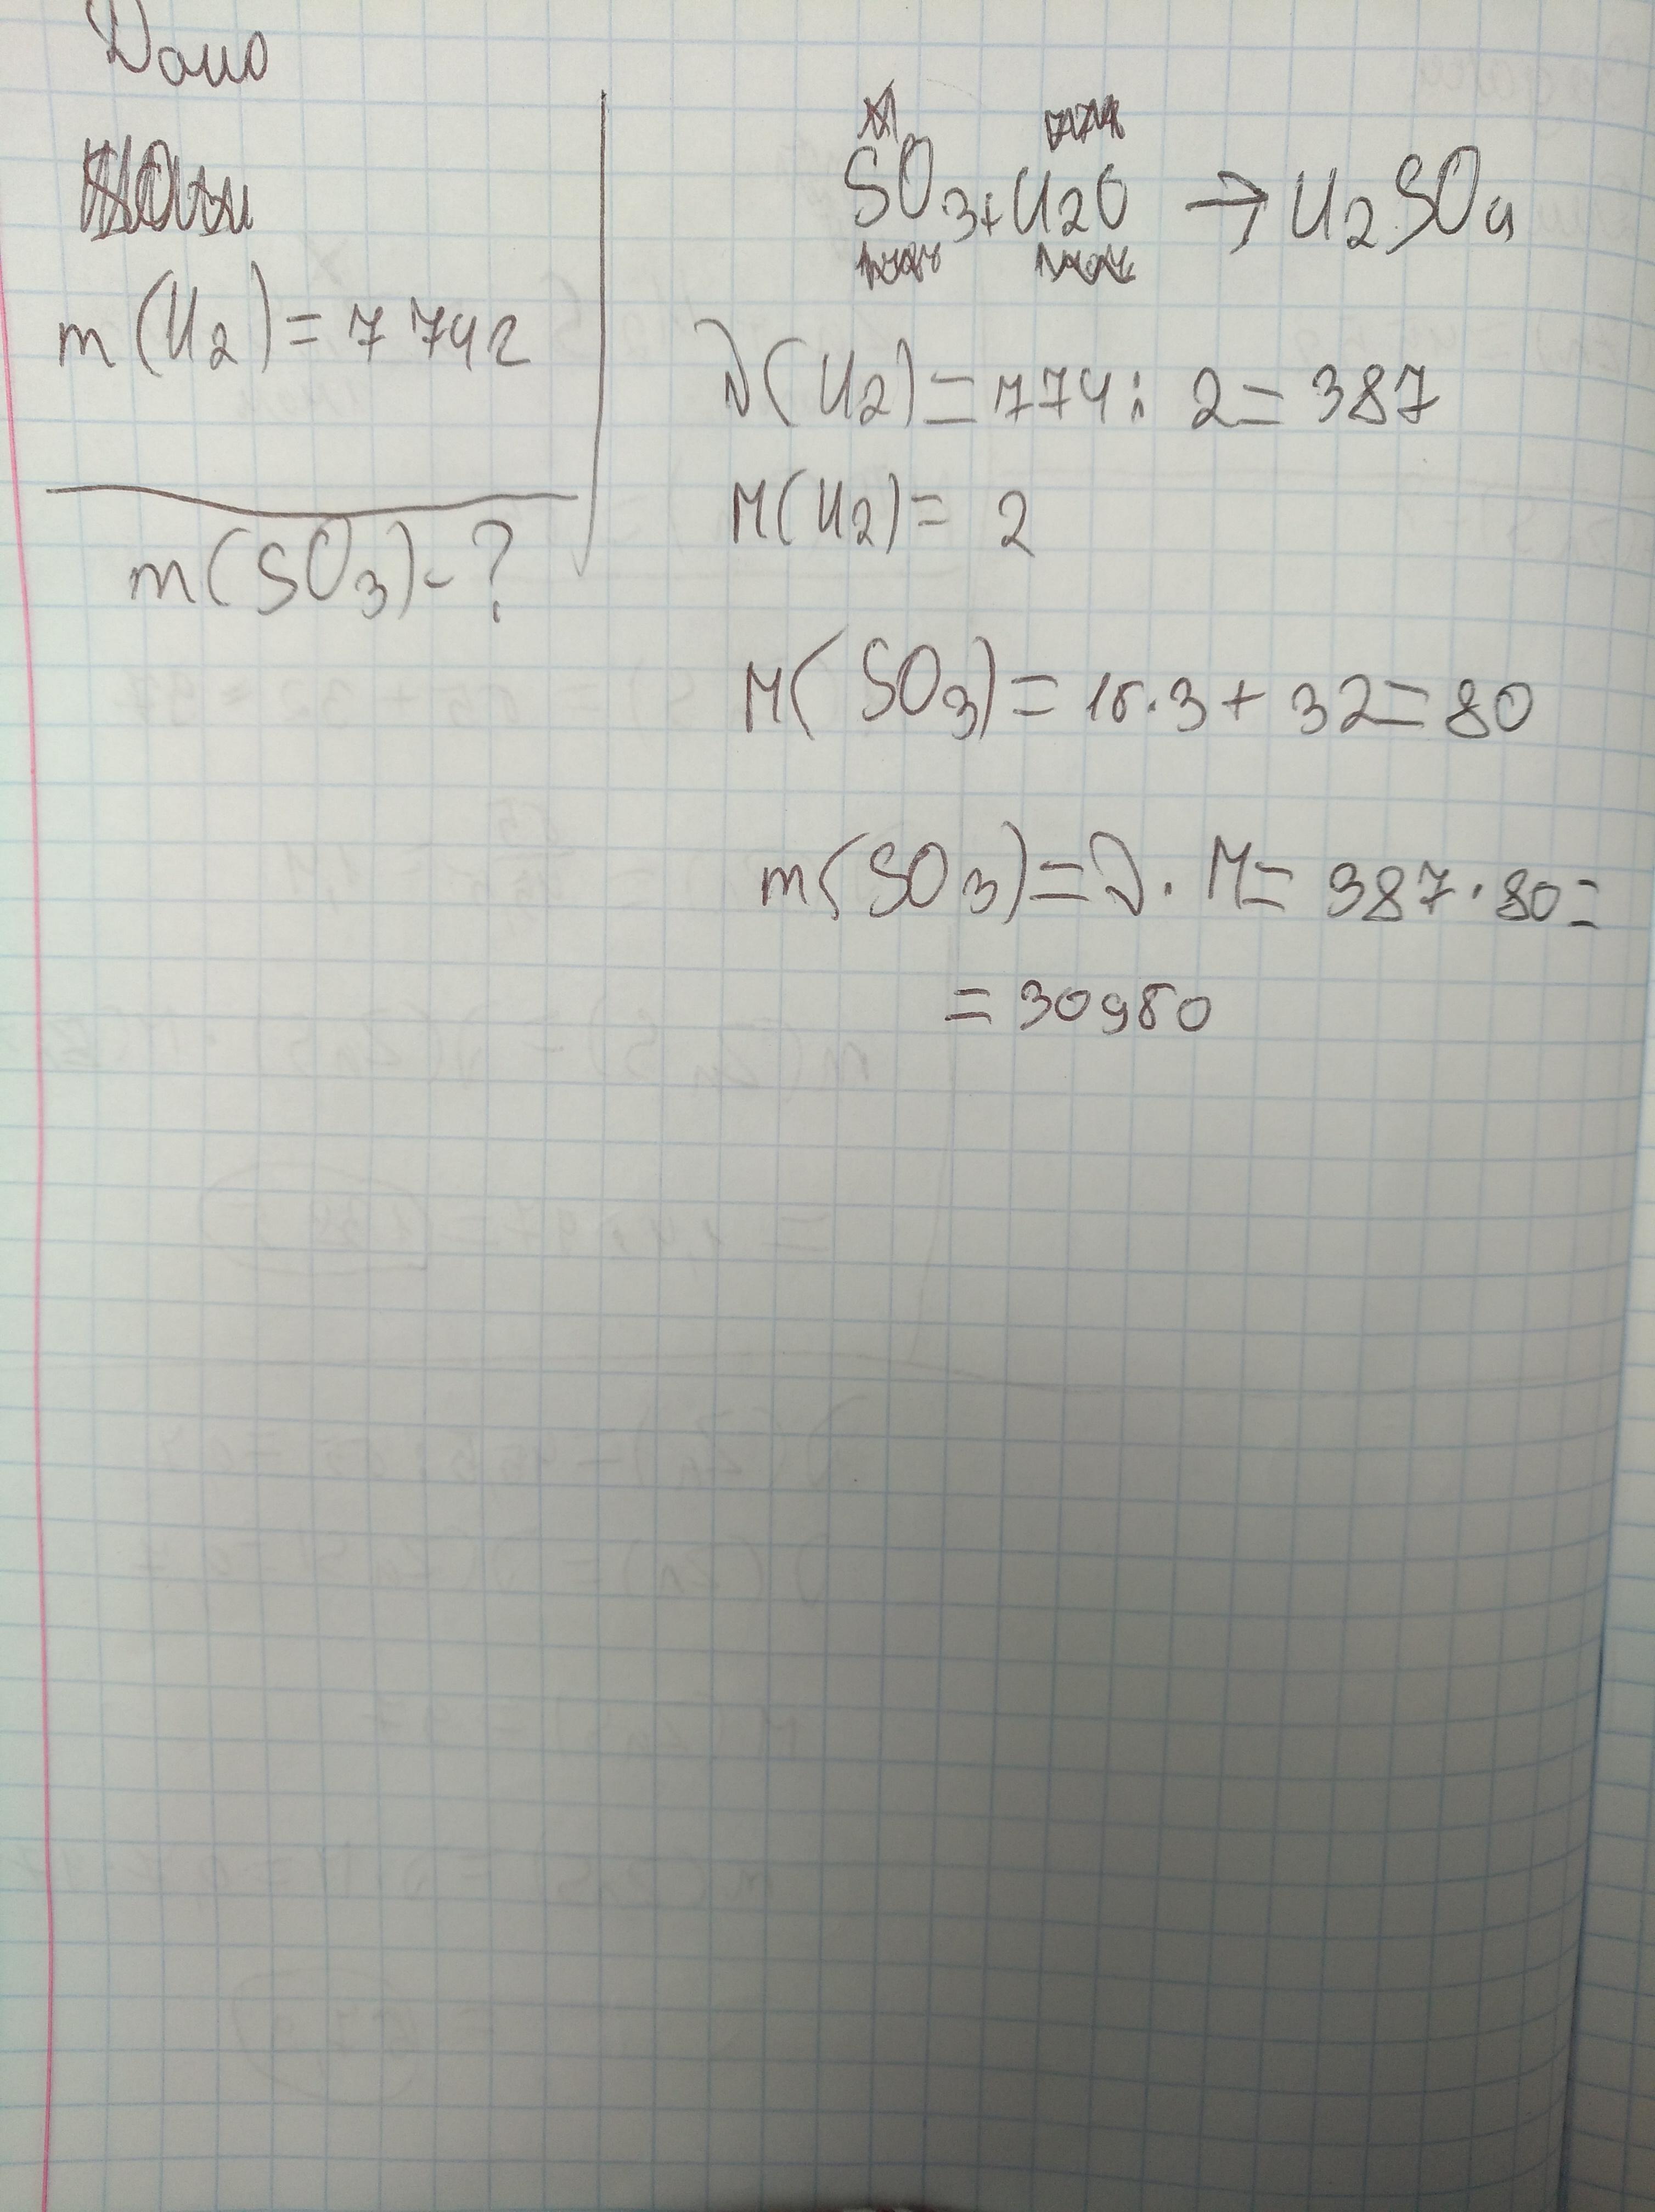 Дано
m(H2) = 774г
m(SO3) - ?
SO3 + H2O → H2SO4
ν(H2) = 774 : 2 = 387
M(H2) = 2
M(SO3) = 16·3 + 32 = 80
m(SO3) = ν · M = 387 · 80 =
= 30960